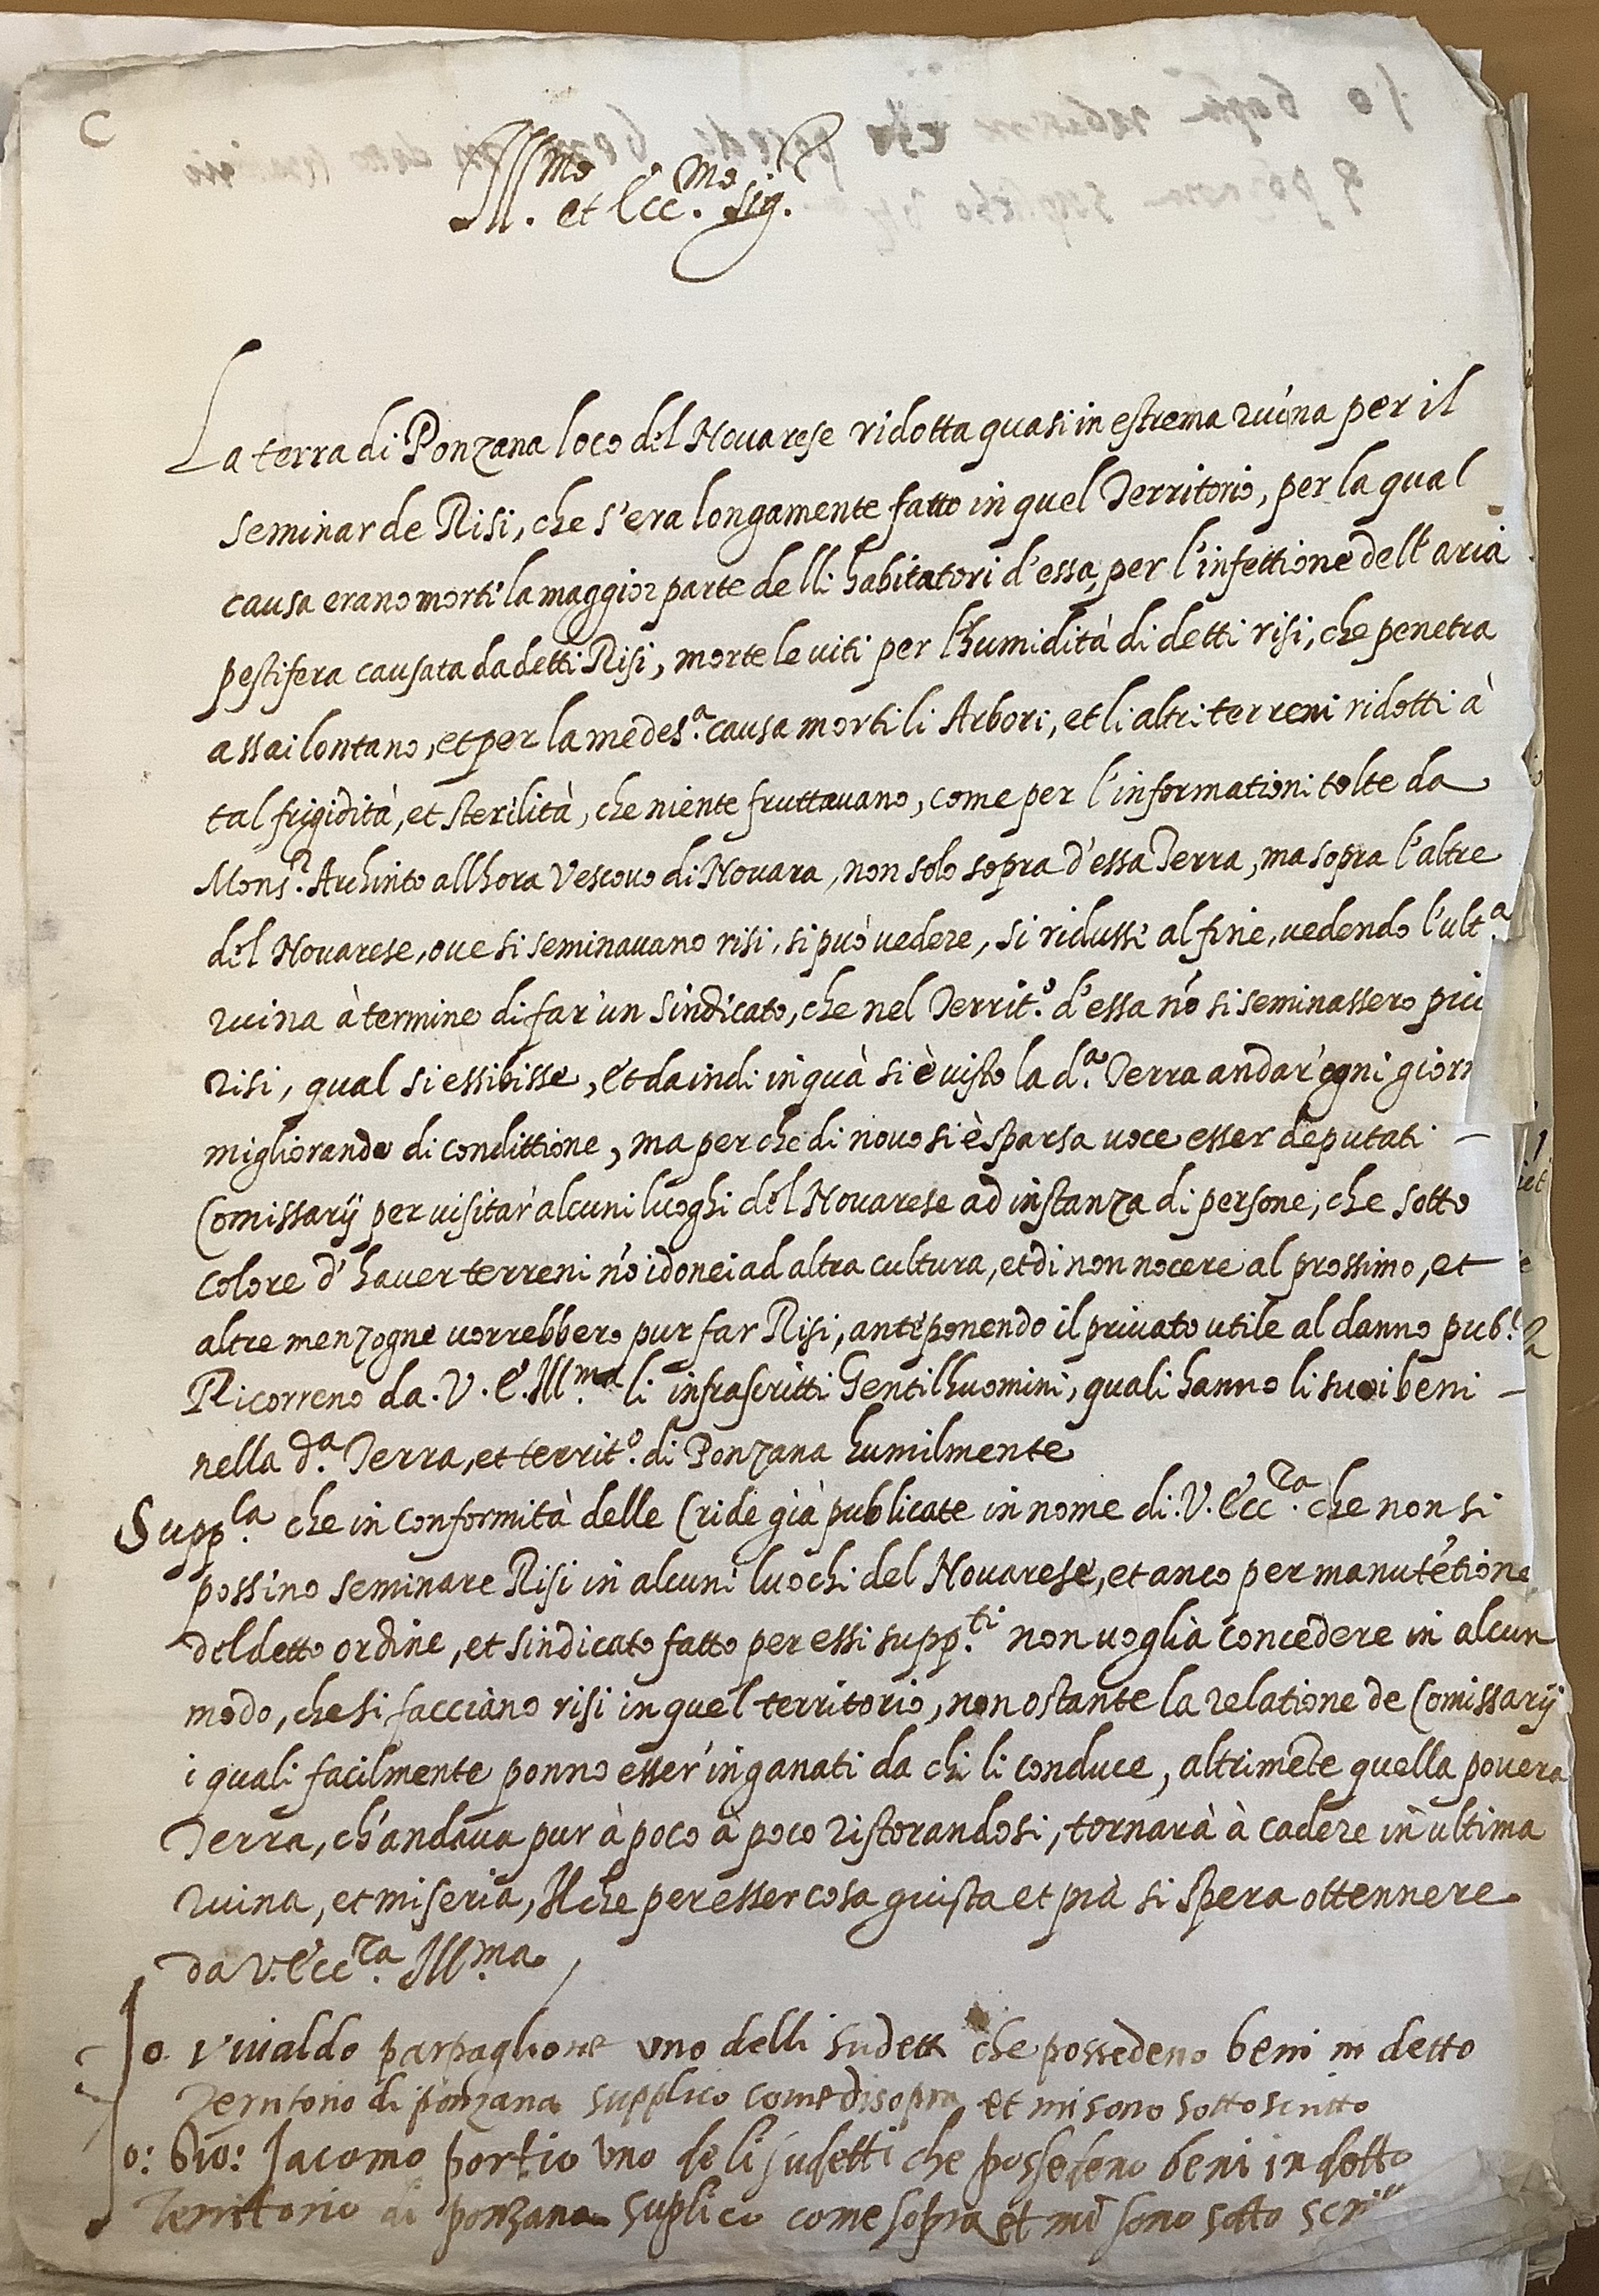 C
Ill.mo et Ecc.mo Sig.r
La terra di Ponzana loco del Novarese ridotta quasi in estrema ruina per il
seminar de Risi, che s'era longamente fatto in quel Territorio, per la qual
causa erano morti la maggior parte delli habitatori d'essa, per l'infettione dell'aria
pestifera causata da detti Risi, morte le viti per l'humidità di detti risi, che penetra
assai lontano, et per la medes.a causa morti li Arbori, et li altri terreni ridotti à
tal frigidità, et sterilità, che niente fruttavano, come per l'informationi tolte da
Mons.r Archinto allhora Vescovo di Novara, non solo sopra d'essa Terra, ma sopra l'altre
del Novarese, ove si seminavano risi, si può vedere, si ridusse al fine, vedendo l'ult.a
ruina à termine di far'un sindicato, che nel Territ.o d'essa nó si seminassero più
risi, qual si essibisse, et da indi in quà si è visto la d.a Terra andar'ogni giorn
migliorando di condittione, ma perche di novo si è sparsa voce esser deputati
Comissarij per visitar'alcuni luoghi del Novarese ad instanza di persone, che sotto
colore d'haver terreni nó idonei ad altra cultura, et di non nocere al prossimo, et
altre menzogne vorrebbero pur far Risi, anteponendo il privato utile al danno pub.o
Ricorreno da V. E. Ill.ma li infrascritti Gentilhuomini, quali hanno li suoi beni
nella d.a Terra, et territ.o di Ponzana humilmente
Supp.la che in conformità delle Cride già publicate in nome di V. Ecc.za che non si
possino seminare Risi in alcuni luochi del Novarese, et anco per manuté́tione
del detto ordine, et sindicato fatto per essi supp.ti non voglia concedere in alcun
modo, che si facciano risi in quel territorio, non ostante la relatione de Comissarij
i quali facilmente ponno esser'inganati da chi li conduce, altriméte quella povera
Terra, ch'andava pur à poco à poco ristorandosi, tornarà à cadere in ultima
ruina, et miseria, Il che per esser cosa giusta et pia si spera ottennere
da V. Ecc.za Ill.ma
Io Vivaldo parpaglione uno delli sudetti che possedeno beni in detto
Territorio di ponzana supplico come di sopra et mi sono sotto scritto
Io: Gio: Jacomo portio uno deli sudetti che possedeno beni in detto
Territorio di ponzana suplico come sopra et mi sono sotto scritto